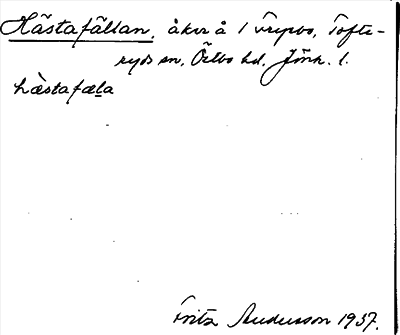 Hästafällan, åker å 1 Frysbo, Tofte-
ryds sn, Östbo hd, Jönk. l.
hæ̀stafæḷa
Fritz Andersson 1937.